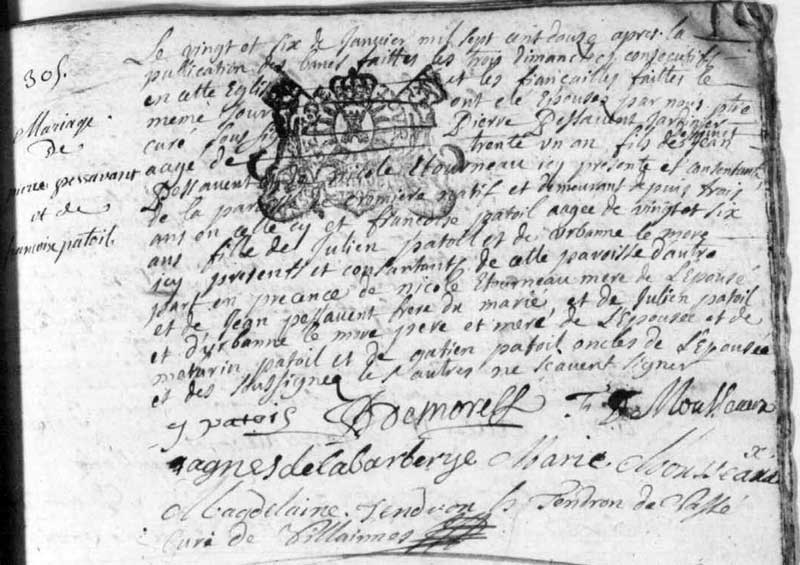 305.
Mariage
De
pierre pessavant
et de
francoise patoil
Le vingt et six de Janvier mil sept cent douze apres la
publication des bans faittes les trois dimanches consecutifs
en cette Eglise et les fiancailles faittes le
meme Jour ont ete Epousez par nous ptre
curé Pierre Pessavent Jardinier
aagé de trente un an fils de Jean
Pessavent et de nicole Etourneau icy presente et consentante
de la par natif et demeurant depuis trois
ans en celle cy et francoise patoil aagee de vingt et six
ans fille de Julien patoil et de urbanne le mere
icy presents et consantants de cette paroisse d'autre
part en precence de nicole Etourneau mere de L'Epousé
et de Jean pessavent frere du marié et de Julien patoil
et d'urbanne le mere pere et meré de L'Epousee et de
maturin patoil et de gatien patoil oncles de L'Epousee
et des soussignee les autres ne scavent signer
J patoil Demorell F De Mousseaux
agnes de Labarberye Marie Mousseaux
Magdelaine Tendron Tendron de
Curé de Villaines